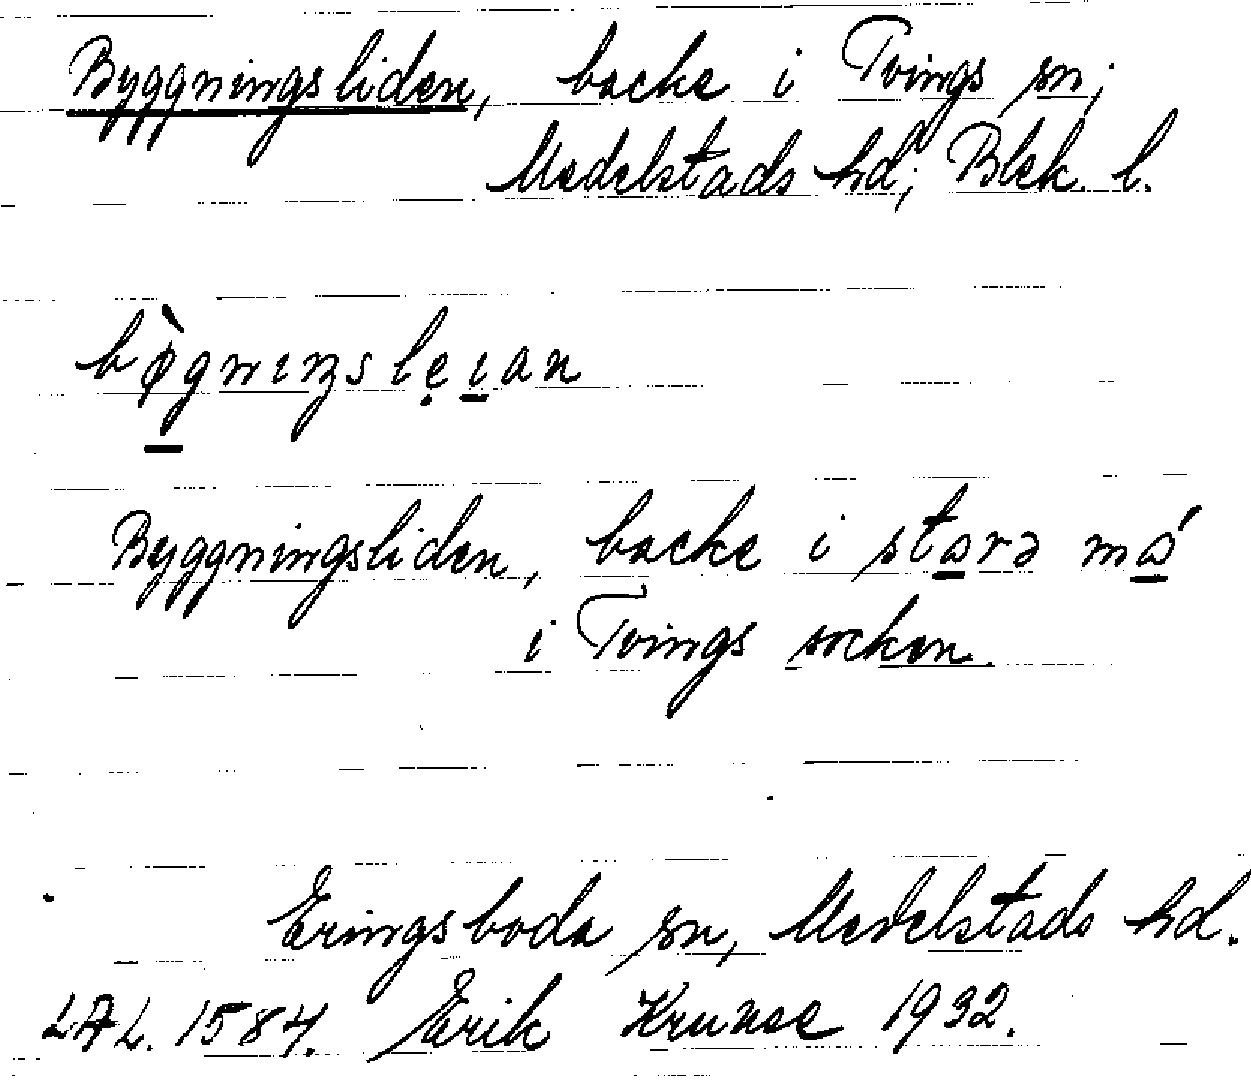 Byggningsliden, backe i Tvings sn,
Medelstads hd, Blek. l.
bø̀gnıŋslẹıan
Byggningsliden, backe i stora må
i Tvings socken.
Eringsboda sn, Medelstads hd.
LAL. 1584. Erik Krunse 1932.